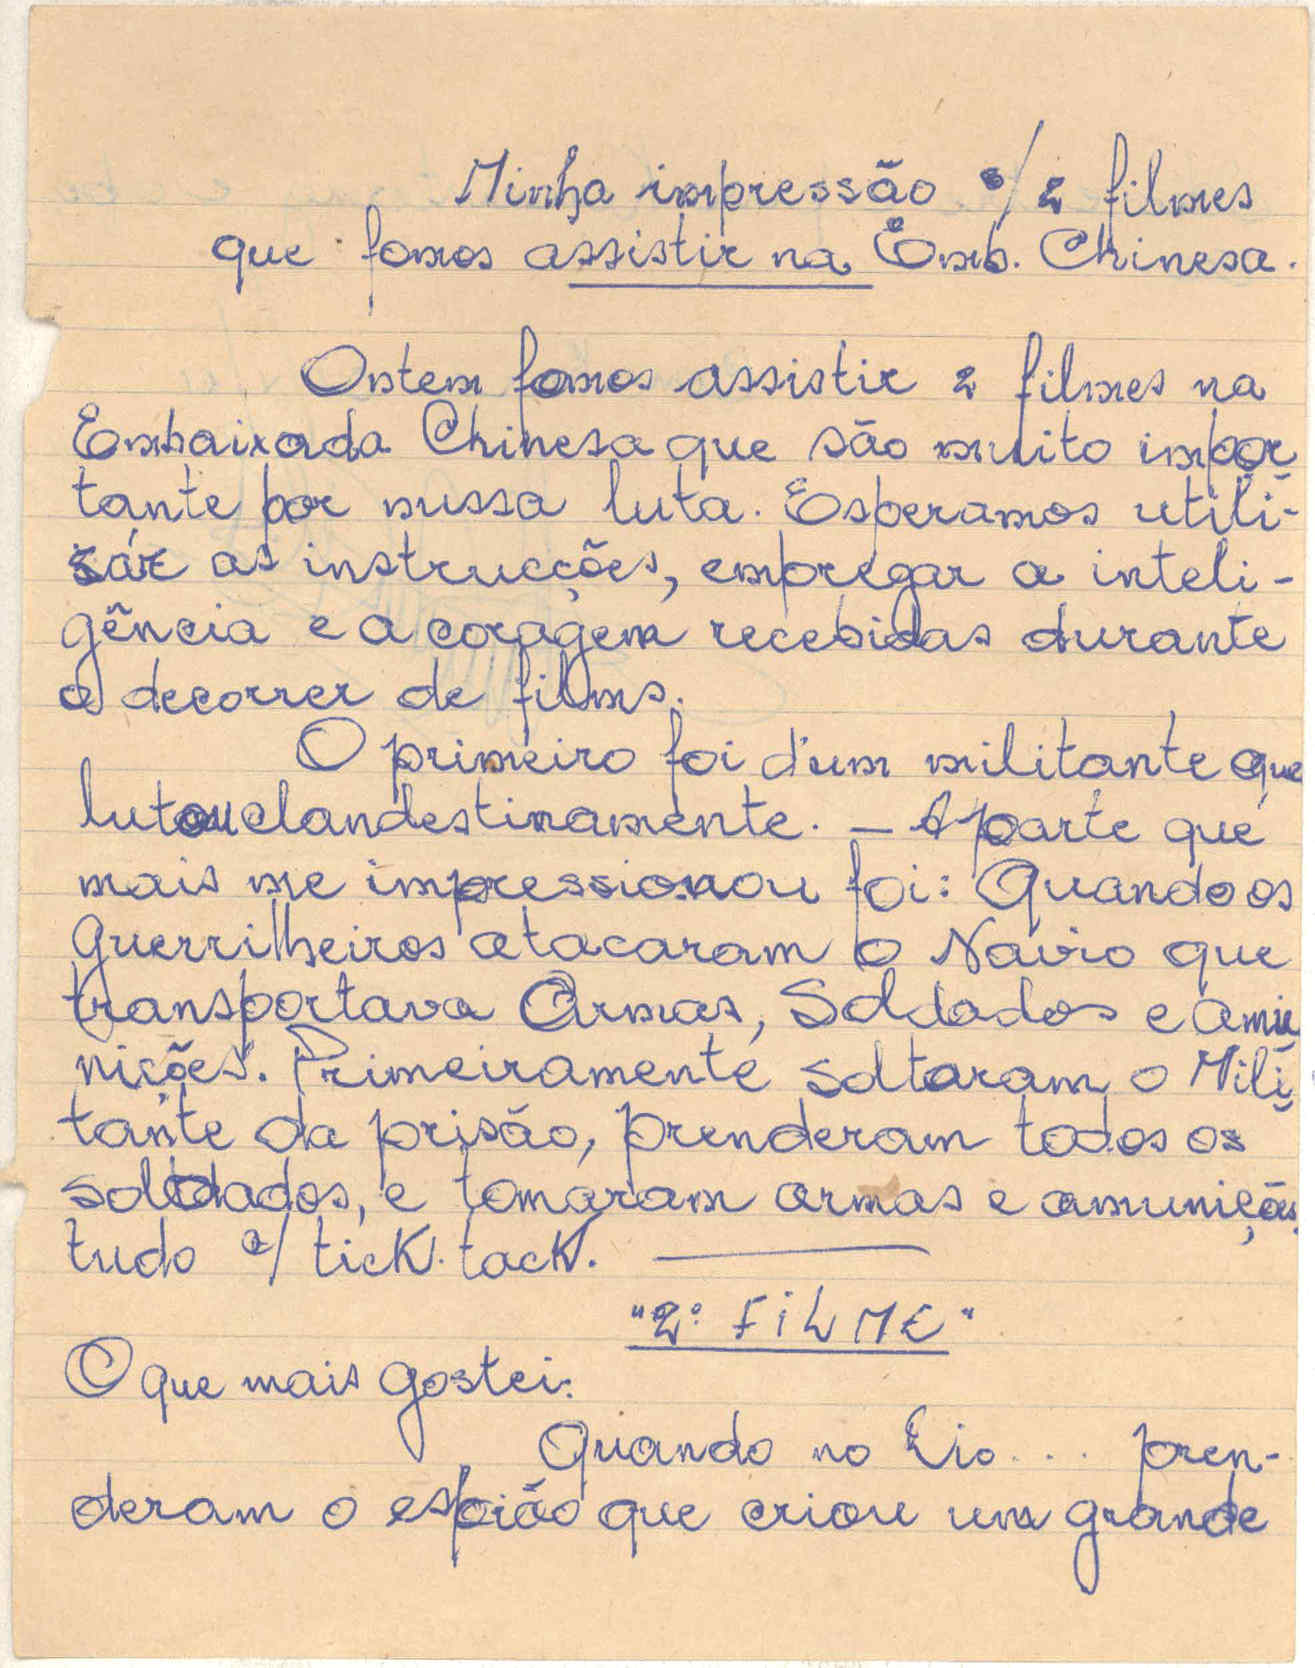 Minha impressão s/ 2 filmes
que fomos assistir na Emb. Chinesa.
Ontem fomos assistir 2 filmes na
Embaixada Chinesa que são muito impor
tante por nussa luta. Esperamos utili-
sár as instrucções, empregar a inteli-
gência e a coragem recebidas durante
o decorrer de films.
O primeiro foi d'um militante que
lutou clandestinamente. — A parte que
mais me impressionou foi: Quando os
Guerrilheiros atacaram o Navio que
transportava Armas, Soldados e amu
nições. Primeiramente soltaram o Mili
tante da prisão, prenderam todos os
soldados, e tomaram armas e amunições,
tudo c/ tick. tack.
"2º FILME"
O que mais gostei:
Quando no Rio... pren-
deram o espião que criou um grande